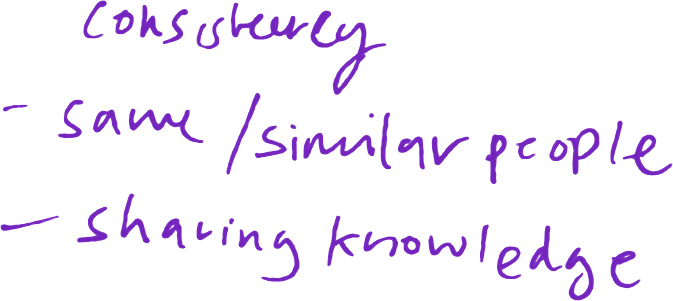 consistency
- same / similar people
- sharing knowledge